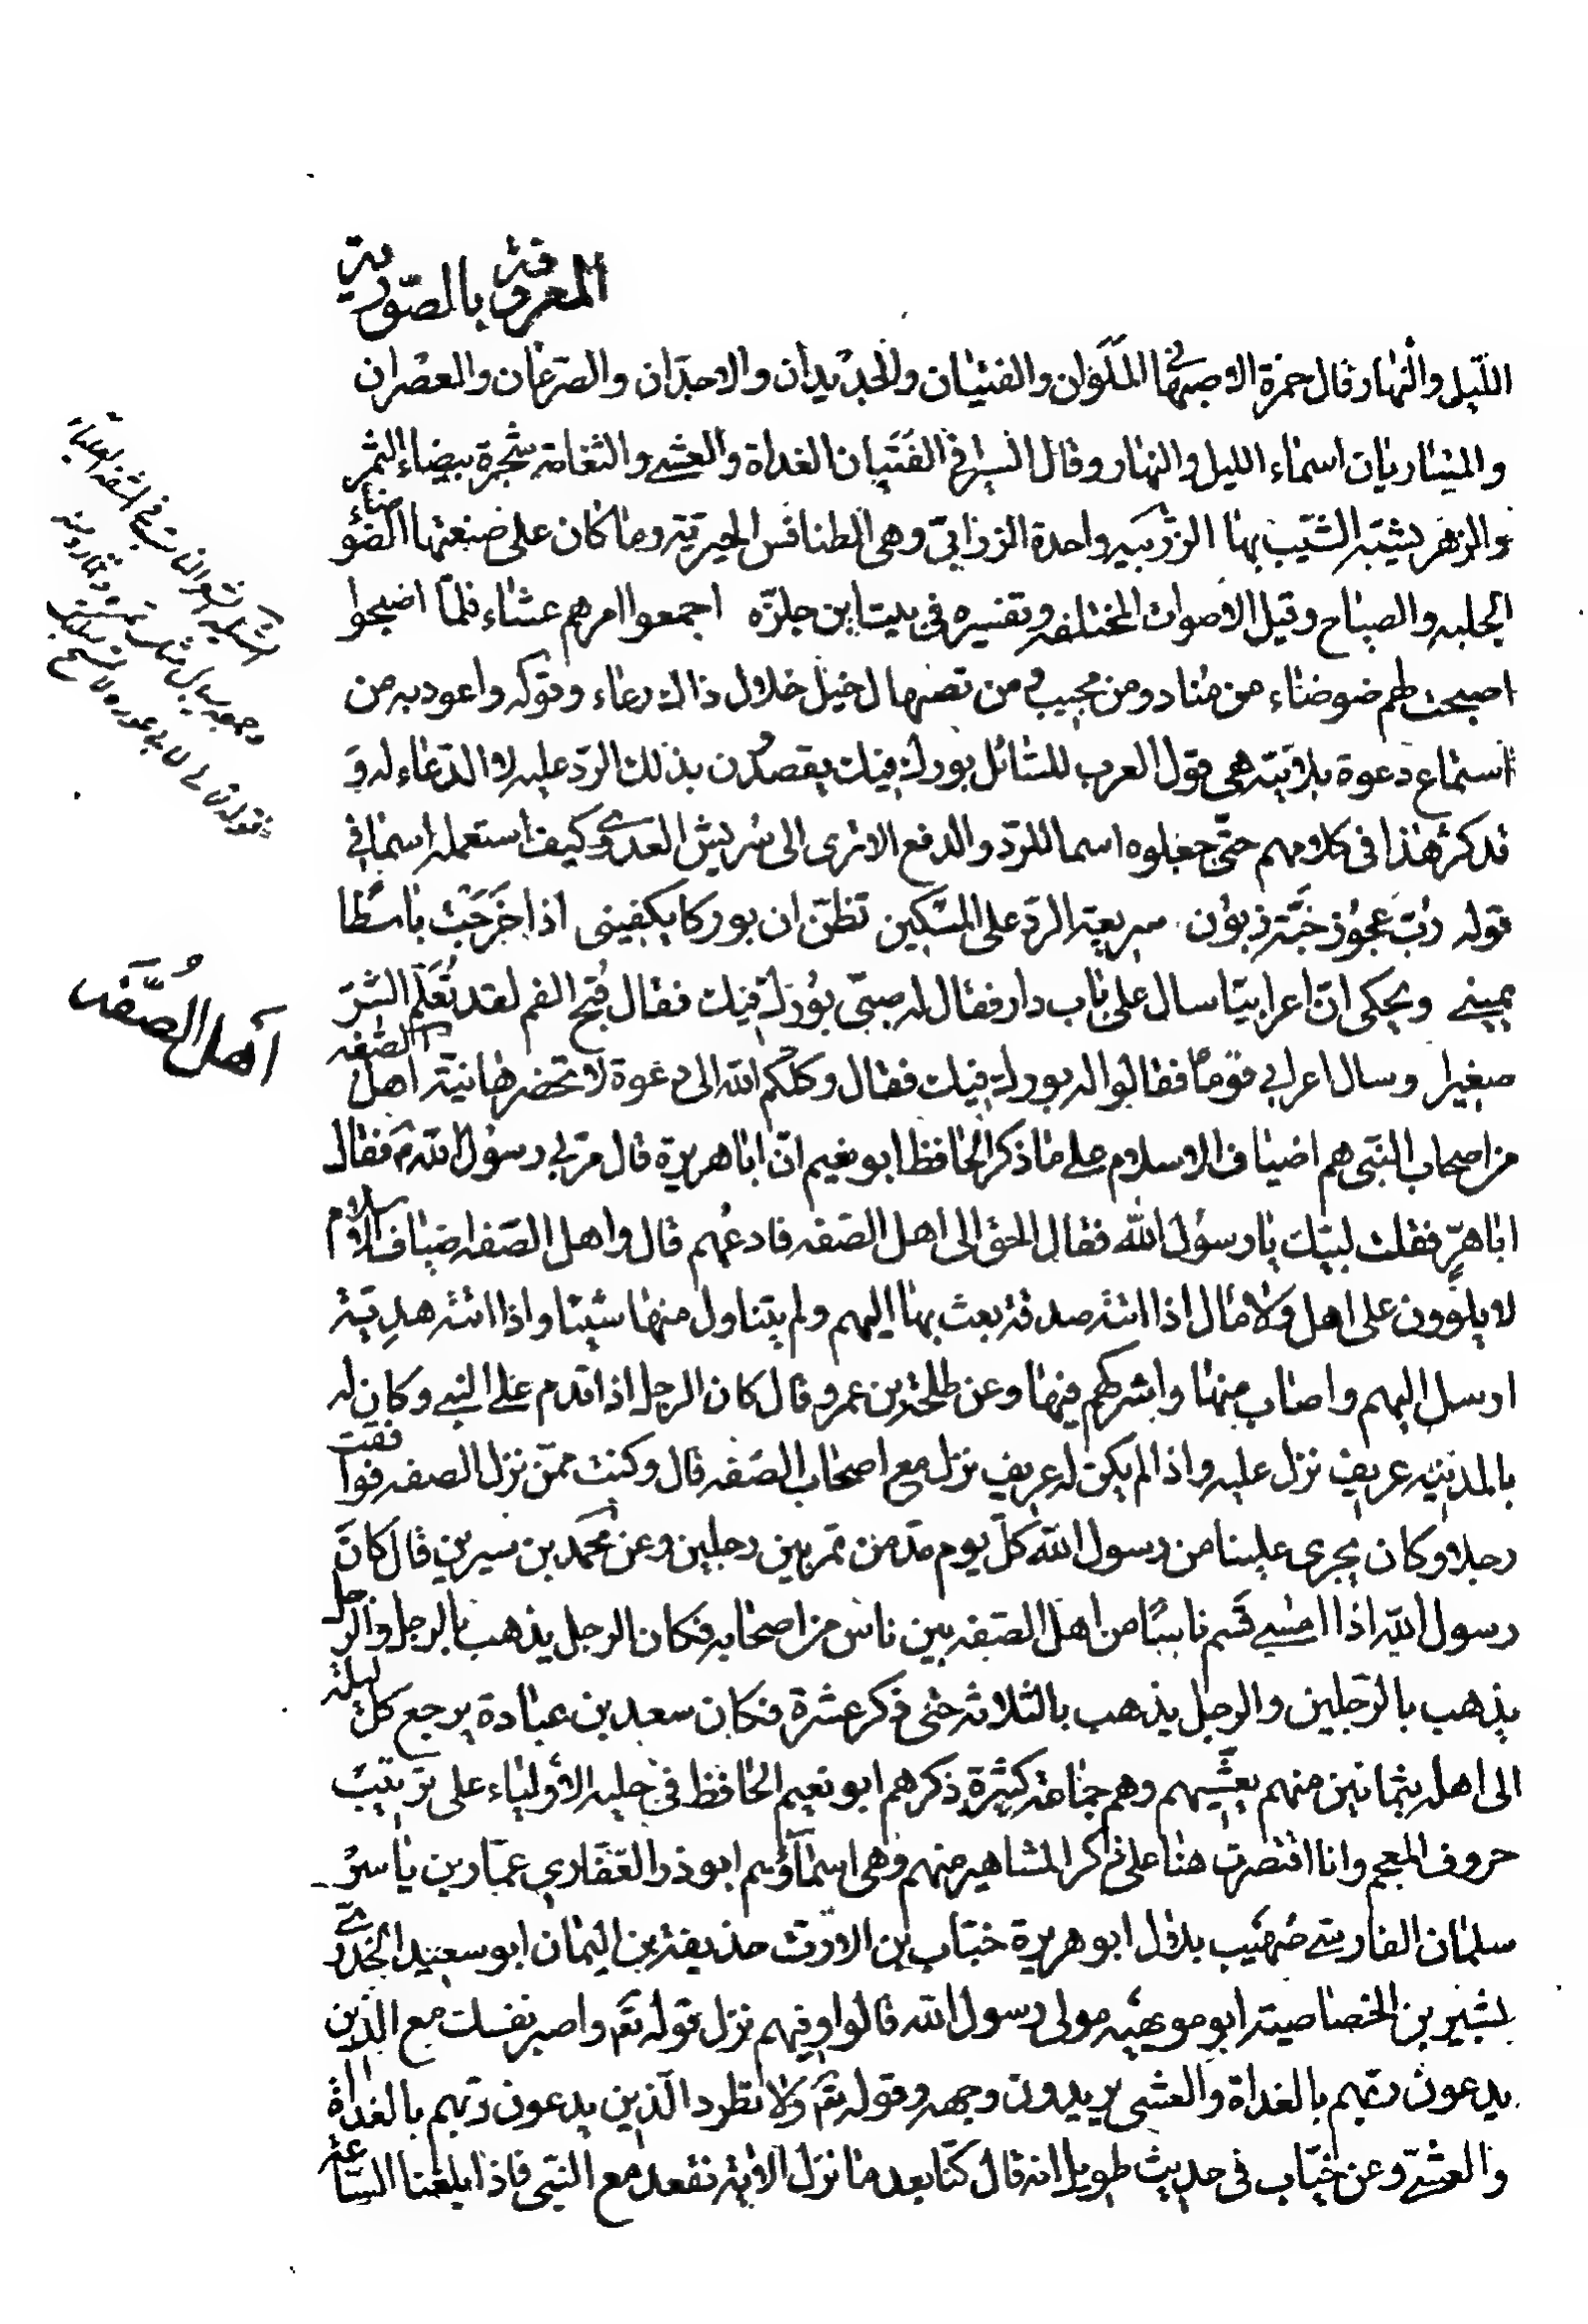 المعروفة بالصّورية
اللّيل والنّهار قال حمزة الاصبهانى الملَوان والفتيان والجديدان والاجدّان والصّرعان والعصْران
اسماء الليل والنهار وقال السيرافى الفَتَيان الغداة والعشى والثغامة شجرة بيضاء الثمر
والزهر يشبّه الشّيب بها الزّربيه واحدة الزرابىّ وهى الطنافس الحيريّة وما كان على صنعتها الضّوضاء
الجلبه والصياح وقيل الاصوات المختلفه وتفسيره فى بيت ابن حلزّه اجمعوا امرهم عشاء فلمّا اصبحوا
اصبحت لهم ضوضاء من مناد ومن مجيب ومن تصهال خيل خلال ذاك رغاء وقوله واعوذ به من
استماع دعوة هى قول العرب للسّائل بورك فيك يقصدون بذلك الردّ عليه لا الدّعاء له و
قد كثر هذا فى كلامهم حتّى جعلوه اسما للردّ والدفع الا ترى الى كيف استعمله اسما فى
قوله ربّ عجوز خبّة زبون سريعة الردّ على المسكين تظنّ ان بوركا يكفينى اذا خَرَجْتُ باسطًا
يمينى ويحكى انّ اعرابيّا سال على باب دار فقال له صبىّ بورك فيك فقال قُبّح الفم لقد تَعَلّم الشّرّ
صغيرا وسال اعرابى قومًا فقالوا له بورك فيك فقال وكلكم الله الى دعوة لا تحضرها نيّة اهل الصّفه
من اصحاب النّبى هم اضياف الاسلام على ما ذكر الحافظ ابو نعيم انّ ابا هريرة قال مرّ بى رسول الله ص فقال
ابا هرّ فقلت لبّيك يا رسول الله فقال الحق الى اهل الصّفه فادعُهم قال واهل الصّفه اضياف الاسلام
لا يلوون على اهل ولا مال اذا اتته صدقة بعث بها اليهم ولم يتناول منها شيئا واذا اتته هديّة
ارسل اليهم واصاب منها واشركهم فيها وعن طلحة بن عمرو قال كان الرجل اذا قدم على النبى وكان له
بالمدينه عريف نزل عليه واذا لم يكن له عريف نزل مع اصحاب الصّفه قال وكنت ممّن نزل الصفه فوافقت
رجلا وكان يجرى علينا من رسول الله كلّ يوم مدّ من تمر بين رجلين وعن محمّد بن سيرين قال كانَ
رسول الله اذا امسى قسّم ناسًا من اهل الصّفه بين ناس من اصحابه فكان الرجل يذهب بالرجل والرّجل
يذهب بالرّجلين والرجل يذهب بالثلاثه حتى ذكر عشرة فكان سعد بن عبادة يرجع كل ليلة
الى اهله بثمانين منهم يعشّيهم وهم جماعة كثيرة ذكرهم ابو نعيم الحافظ فى حليه الاولياء على ترتيب
حروف المعجم وانا اقتصرت هنا على ذكر المشاهير منهم وهى اسماؤهم ابو ذر الغفارى عمّار بن ياسر
سلمان الفارسى صُهَيب بلال ابو هريرة خبّاب بن الارتّ حذيفة بن اليمان ابو سعيد الخُدرى
بشير بن الخصاصية ابو مويهبه مولى رسول الله قالوا وفيهم نزل قوله تع واصبر نفسك مع الذين
يدعون ربّهم بالغداة والعشى يريدون وجهه وقوله تع ولا تطرد الّذين يدعون ربّهم بالغداة
والعشىّ وعن خبّاب فى حديث طويل انه قال كنّا بعد ما نزل الاية نقعد مع النبّى فاذا بلغنا السّاعة
اَهل الصُّفّه